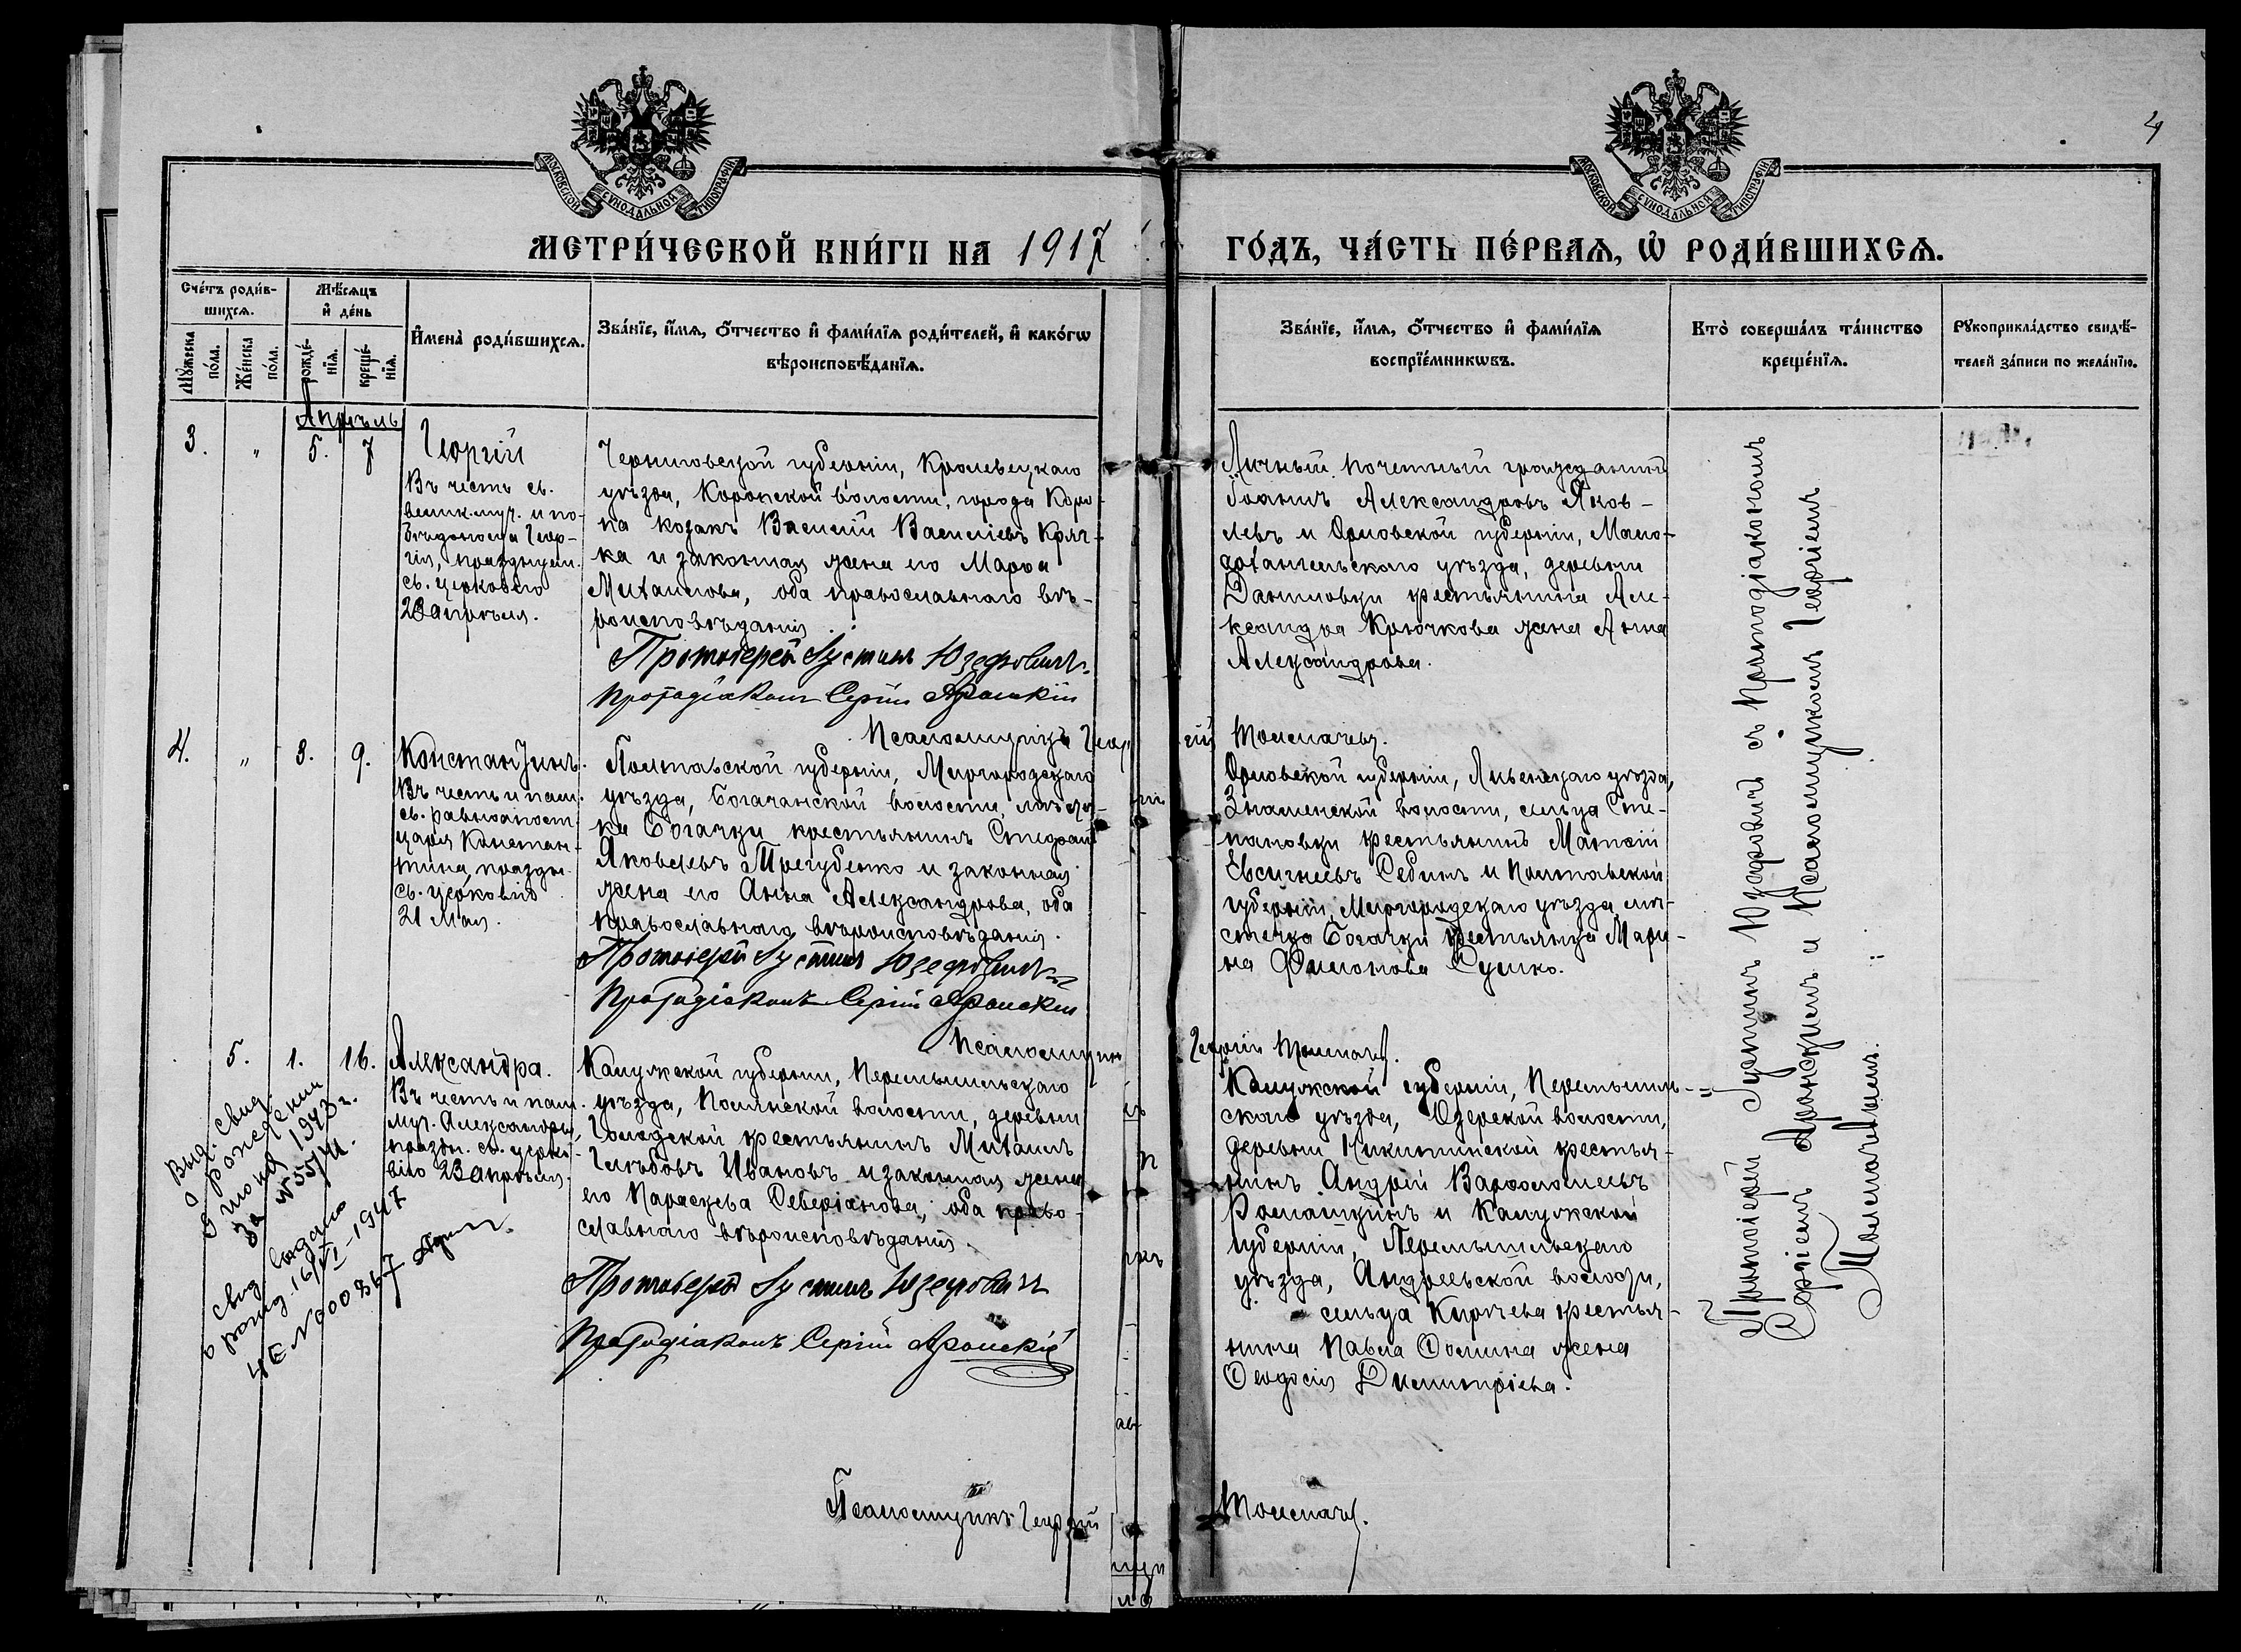 4
МОСКОВСКОЙ СѴНОДАЛЬНОЙ ТИПОГРАФІИ
МОСКОВСКОЙ СѴНОДАЛЬНОЙ ТИПОГРАФІИ
МЕТРИ́ЧЕСКОЙ КНИ́ГИ НА 1917 ГО́ДЪ, ЧА́СТЬ ПЕ́РВАѦ, Ѡ҆ РОДИ́ВШИХСѦ.
Сче́тъ роди́в-
шихсѧ.
Мꙋ́жеска по́ла.
Же́нска по́ла.
Мѣ́сѧцъ
и҆ де́нь
рожде́-
нїѧ.
креще́-
нїѧ.
И҆мена̀ роди́вшихсѧ.
Зва́нїе, и҆́мѧ, ѻ҆́тчество и҆ фами́лїѧ роди́телей, и҆ како́гѡ
вѣроисповѣ́данїѧ.
Зва́нїе, и҆́мѧ, ѻ҆́тчество и҆ фами́лїѧ
воспрїе́мникѡвъ.
Кто̀ соверша́лъ та́инство
креще́нїѧ.
Рꙋкоприкла́дство свидѣ́-
телей за́писи по жела́нїю.
Апрѣль
3. " 5. 7
Георгій
Въ честь св.
велик.муч. и по-
бѣдоносца Геор-
гія, празднуем.
св. церковію
23 апрѣля.
Черниговской губерніи, Кролевецкаго
уѣзда, Коропской волости, города Коро-
па козакъ Василій Васильевъ Кряч-
ка и законная жена его Марѳа
Михаилова, оба православнаго вѣ-
роисповѣданія.
Протоіерей Іустинъ Юзефовичъ
Протодіаконъ Сергій Аронскій
Псаломщикъ Георгій Толмачевъ.
Личный почетный гражданинъ
Іоаннъ Александровъ Яков-
левъ и Орловской губерніи, Мало-
архангельскаго уѣзда, деревни
Даниловки крестьянина Але-
ксандра Крючкова жена Анна
Александрова.
4. " 3. 9.
Константинъ.
Въ честь и пам.
св. равноапост.
царя Констан-
тина, праздн.
св. церковію
21 Мая.
Полтавской губерніи, Миргородскаго
уѣзда, Богачанской волости, мѣстеч-
ка Богачки крестьянинъ Стефанъ
Яковлевъ Трегубенко и законная
жена его Анна Александрова, оба
православнаго вѣроисповѣданія.
Протоіерей Іустинъ Юзефовичъ
Протодіаконъ Сергій Аронскій
Псаломщикъ Георгій Толмачевъ.
Орловской губерніи, Ливенскаго уѣзда,
Знаменской волости, сельца Сте-
пановки крестьянинъ Матѳій
Евсигнеевъ Себинъ и Полтавской
губерніи, Миргородскаго уѣзда, мѣ-
стечка Богачки крестьянка Мари-
на Филонова Сушко.
5. 1. 16.
Александра.
Въ честь и пам.
муч. Александры,
праздн. св. церко-
вію 23 апрѣля.
Калужской губерніи, Перемышльскаго
уѣзда, Полянской волости, деревни
Голодской крестьянинъ Михаилъ
Глѣбовъ Ивановъ и законная жена
его Параскева Северіанова, оба право-
славнаго вѣроисповѣданія.
Протоіерей Іустинъ Юзефовичъ
Протодіаконъ Сергій Аронскій
Псаломщикъ Георгій Толмачевъ.
Калужской губерніи, Перемышль-
скаго уѣзда, Озерской волости,
деревни Никитинской крестья-
нинъ Андрій Варѳоломеевъ
Ромашкинъ и Калужской
губерніи, Перемышльскаго
уѣзда, Андреевской волости,
сельца Киреева крестья-
нина Павла Ѳомина жена
Ѳеодосія Димитріева.
Выд. свид.
о рождении
9 июня 1943 г.
за № 55/41.
Свид. выдано
о рожд. 16/VI-1947
ЧЕ № 00867
Протоіерей Іустинъ Юзефовичъ съ Протодіакономъ
Сергіемъ Аронскимъ и Псаломщикомъ Георгіемъ
Толмачевымъ.